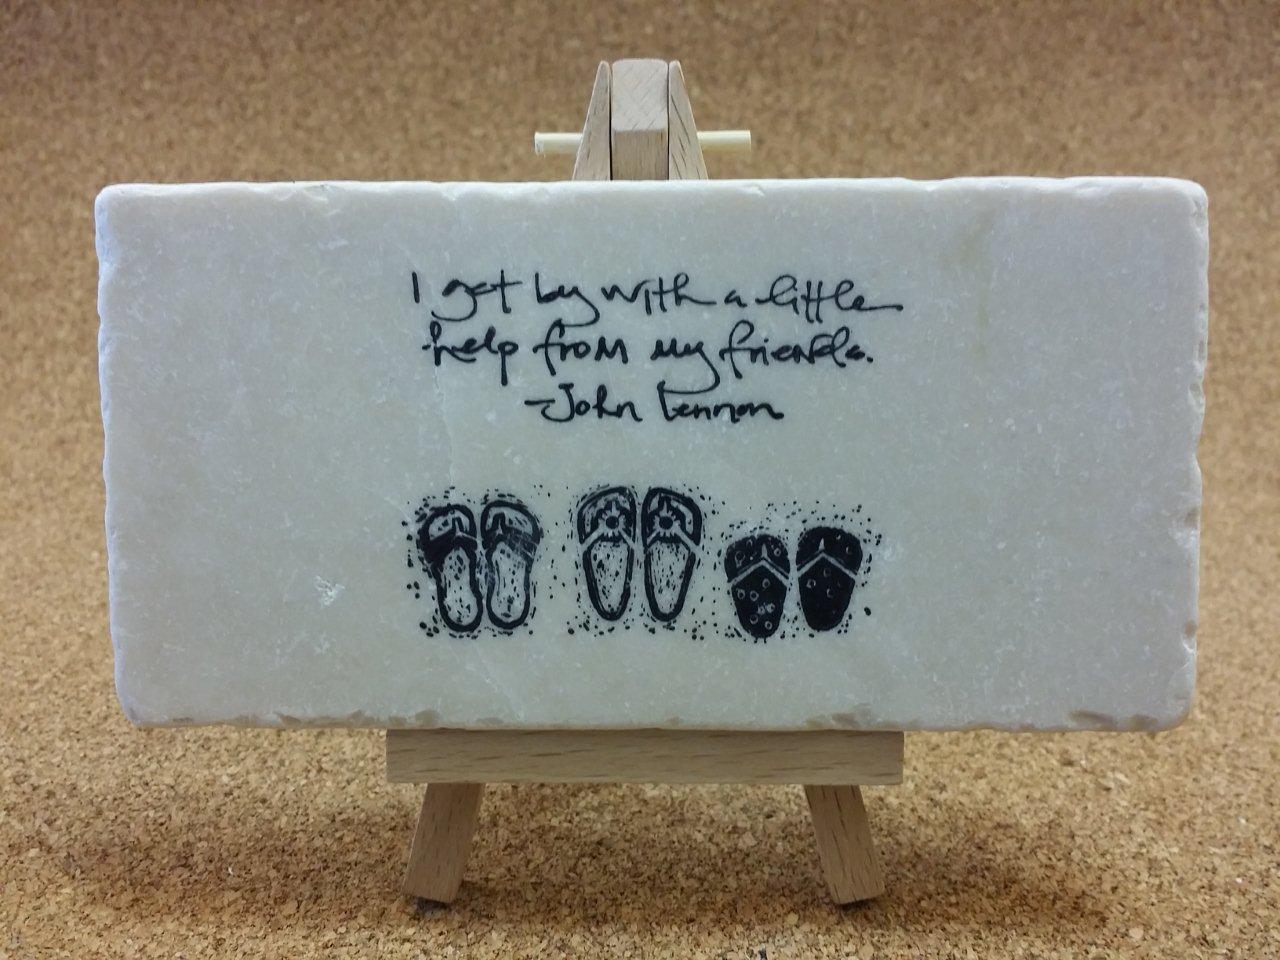 I get by with a little
help from my friends.
-John Lennon